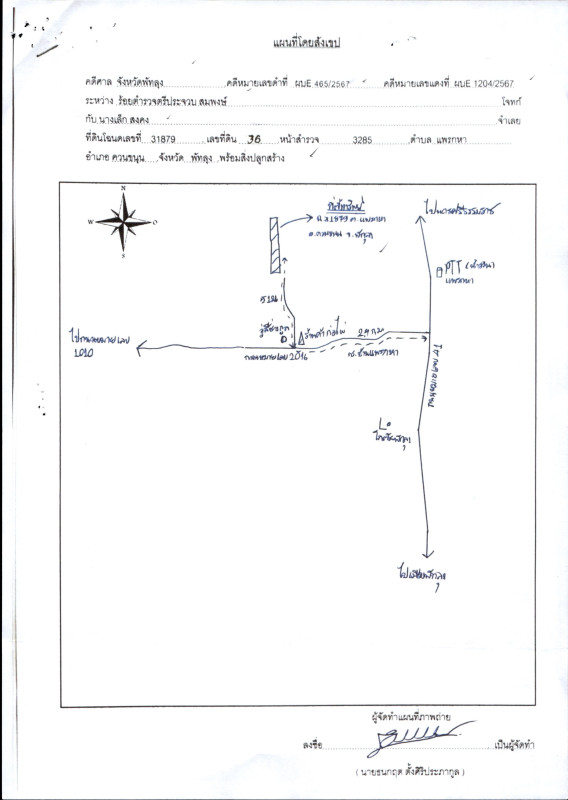 แผนที่โดยสังเขป
คดีศาล จังหวัดพัทลุง คดีหมายเลขดำที่ ผบE 465/2567 คดีหมายเลขแดงที่ ผบE 1204/2567
ระหว่าง ร้อยตำรวจตรีประจวบ สมพงษ์ โจทก์
กับ นางเล็ก สงคง จำเลย
ที่ดินโฉนดเลขที่ 31879 เลขที่ดิน 36 หน้าสำรวจ 3285 ตำบล แพรกหา
อำเภอ ควนขนุน จังหวัด พัทลุง พร้อมสิ่งปลูกสร้าง
N
W O
S
ที่ตั้งทรัพย์
ฉ.31879 ต.แพรกหา
อ.ควนขนุน จ.พัทลุง
ไปนครศรีธรรมราช
PTT
แพรกหา
ไปทางหลวงหมายเลข
1010
ทางหลวงหมายเลข 2016
รร.บ้านแพรกหา
ไปเมืองพัทลุง
ผู้จัดทำแผนที่ภาพถ่าย
ลงชื่อ เป็นผู้จัดทำ
( นายธนกฤต ตั้งศิริประภากูล )